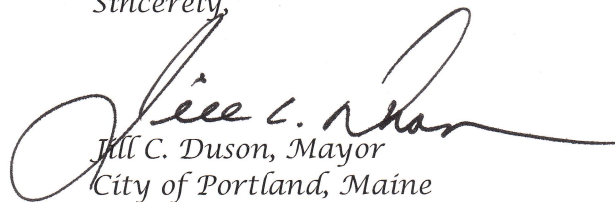 Sincerely,
Jill C. Duson
Jill C. Duson, Mayor
City of Portland, Maine